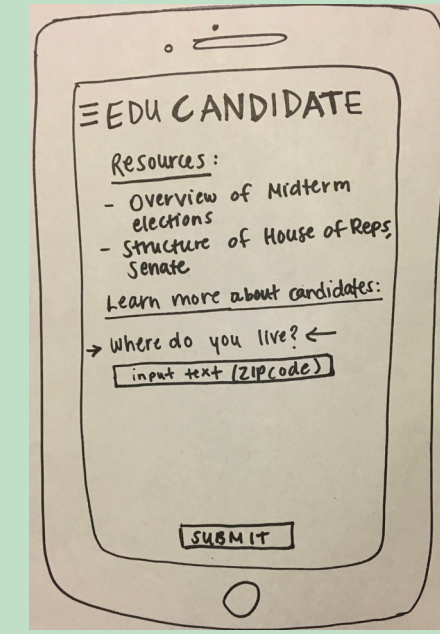 EDU CANDIDATE
Resources:
- Overview of Midterm
elections
- Structure of House of Reps,
Senate
Learn more about candidates:
→ Where do you live? ←
input text (ZIPcode)
SUBMIT